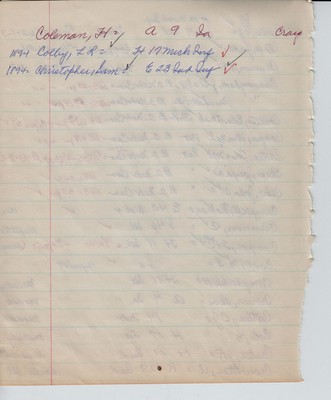 Coleman, H = A 9 Ia Craig
1894 Colby, L R = H 17 Mich Inf
1894. Christopher, Sam = E 23 Ind Inf